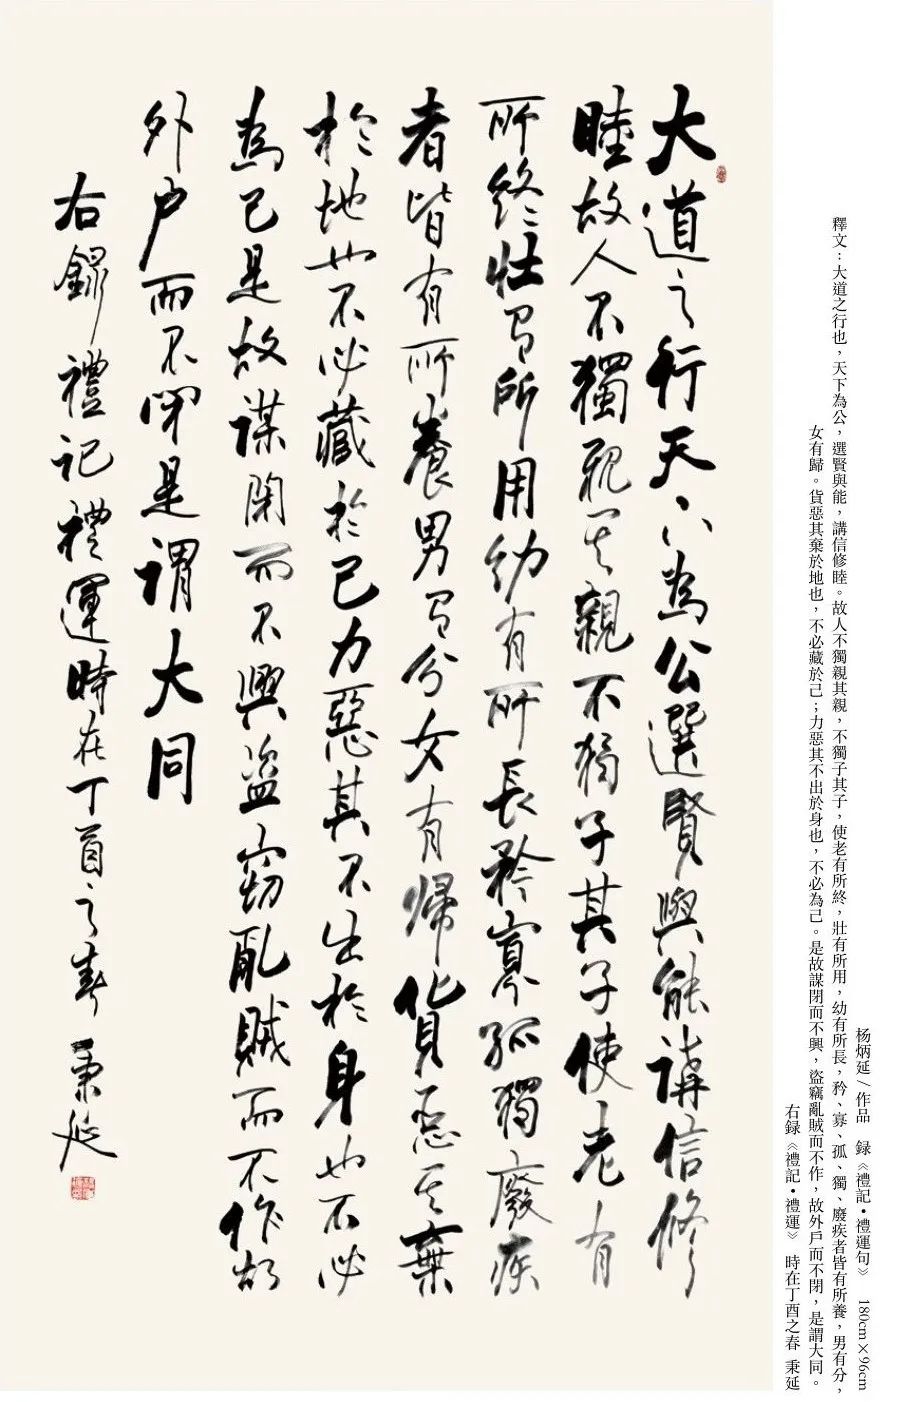 杨炳延/作品　録《禮記•禮運句》　180cm×96cm
釋文：大道之行也，天下為公，選賢與能，講信修睦。故人不獨親其親，不獨子其子，使老有所終，壯有所用，幼有所長，矜、寡、孤、獨、廢疾者皆有所養，男有分，
女有歸。貨惡其棄於地也，不必藏於己；力惡其不出於身也，不必為己。是故謀閉而不興，盜竊亂賊而不作，故外戶而不閉，是謂大同。
右録《禮記•禮運》　時在丁酉之春　秉延
大道之行天下為公選賢與能講信修
睦故人不獨親其親不獨子其子使老有
所終壯有所用幼有所長矜寡孤獨廢疾
者皆有所養男有分女有歸貨惡其棄
於地也不必藏於己力惡其不出於身也不必
為己是故謀閉而不興盜竊亂賊而不作故
外戶而不閉是謂大同
右録禮記禮運時在丁酉之春 秉延